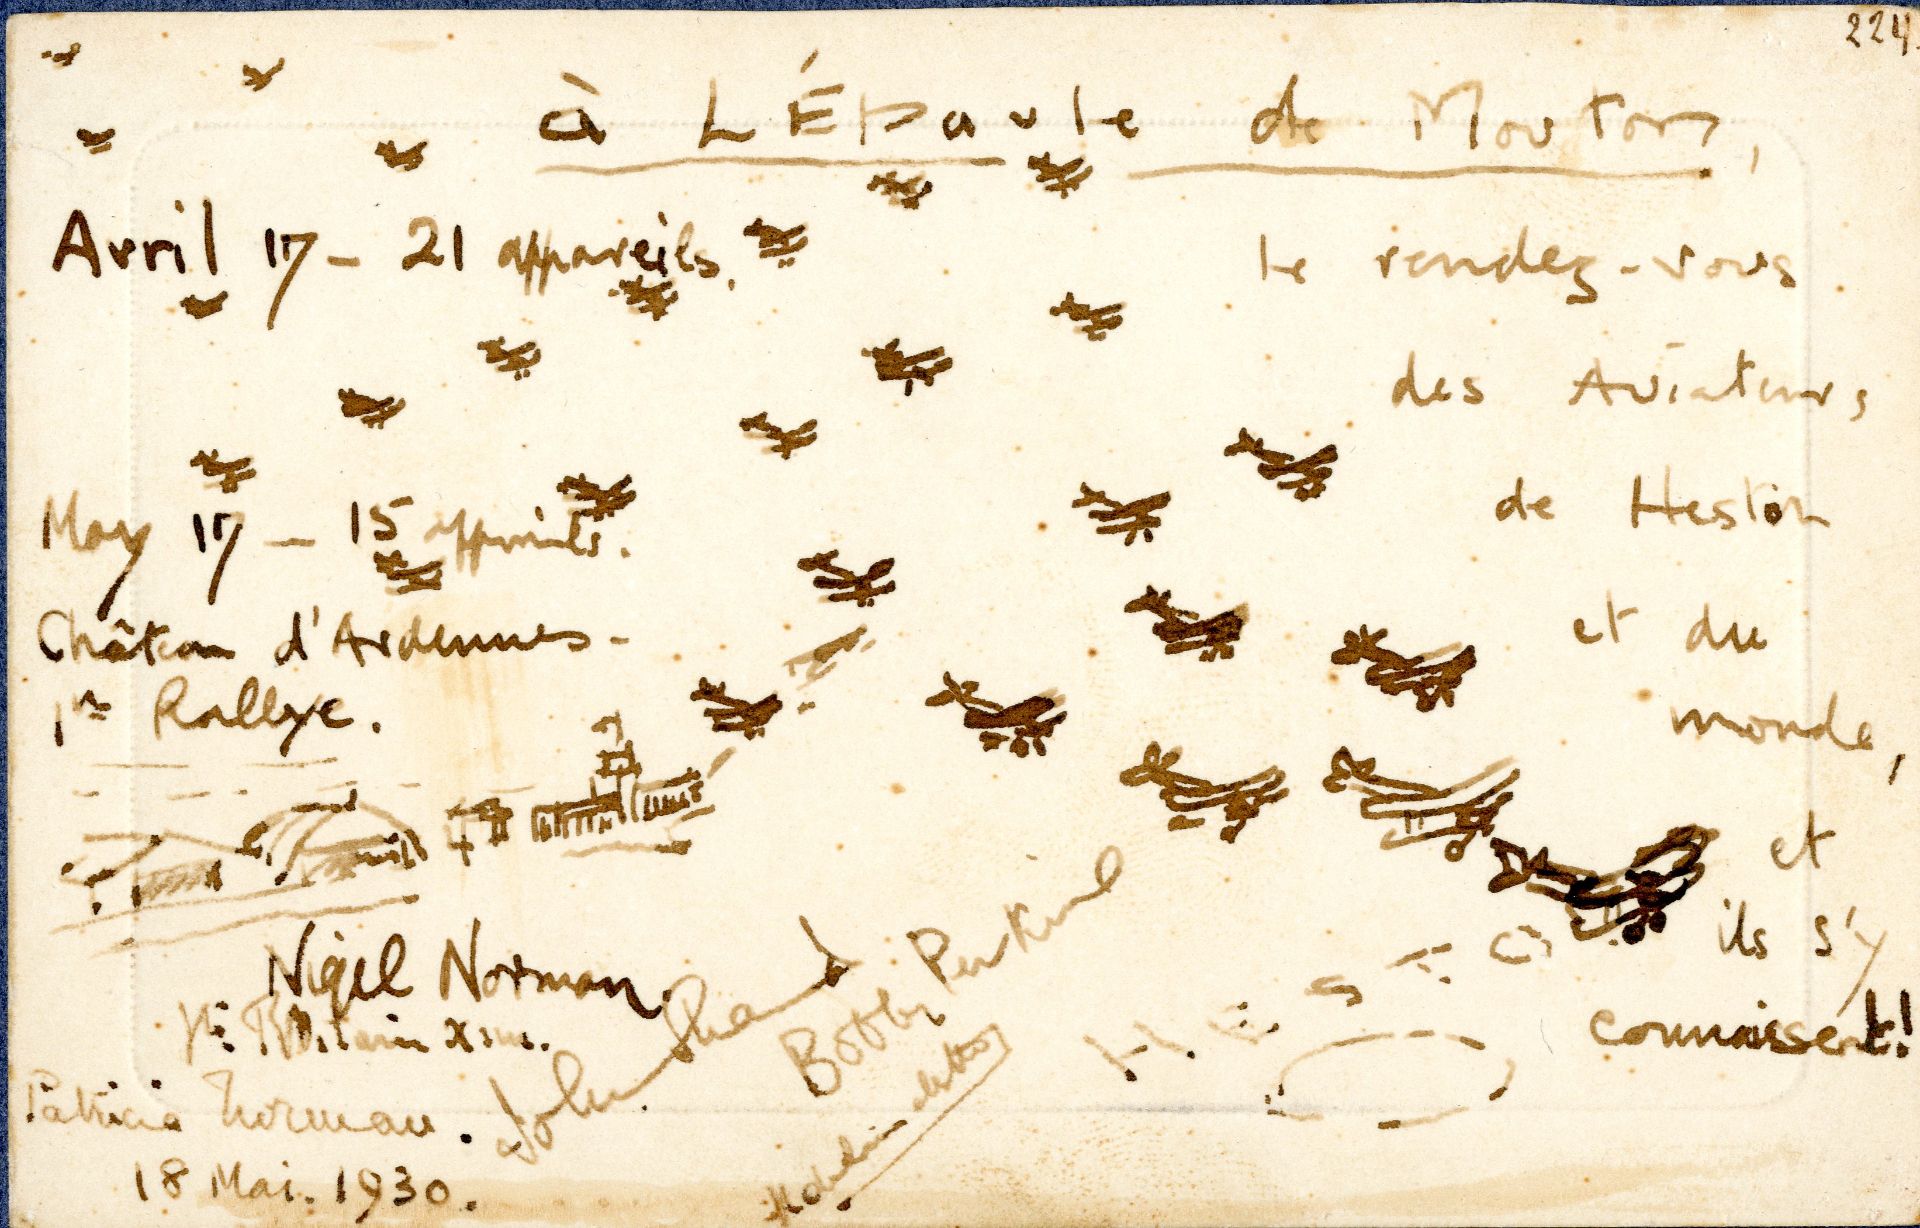 224
à L'Épaule de Mouton,
Avril 17 - 21 appareils.
le rendez-vous
des Aviateurs
de Heston
et du
monde,
et
ils s'y
connaissent!
May 17 - 15 appareils.
Château d'Ardennes -
1er Rallye.
HESTON
Nigel Norman.
Patricia Norman.
18 Mai. 1930.
John Shand
Bobby Perkins